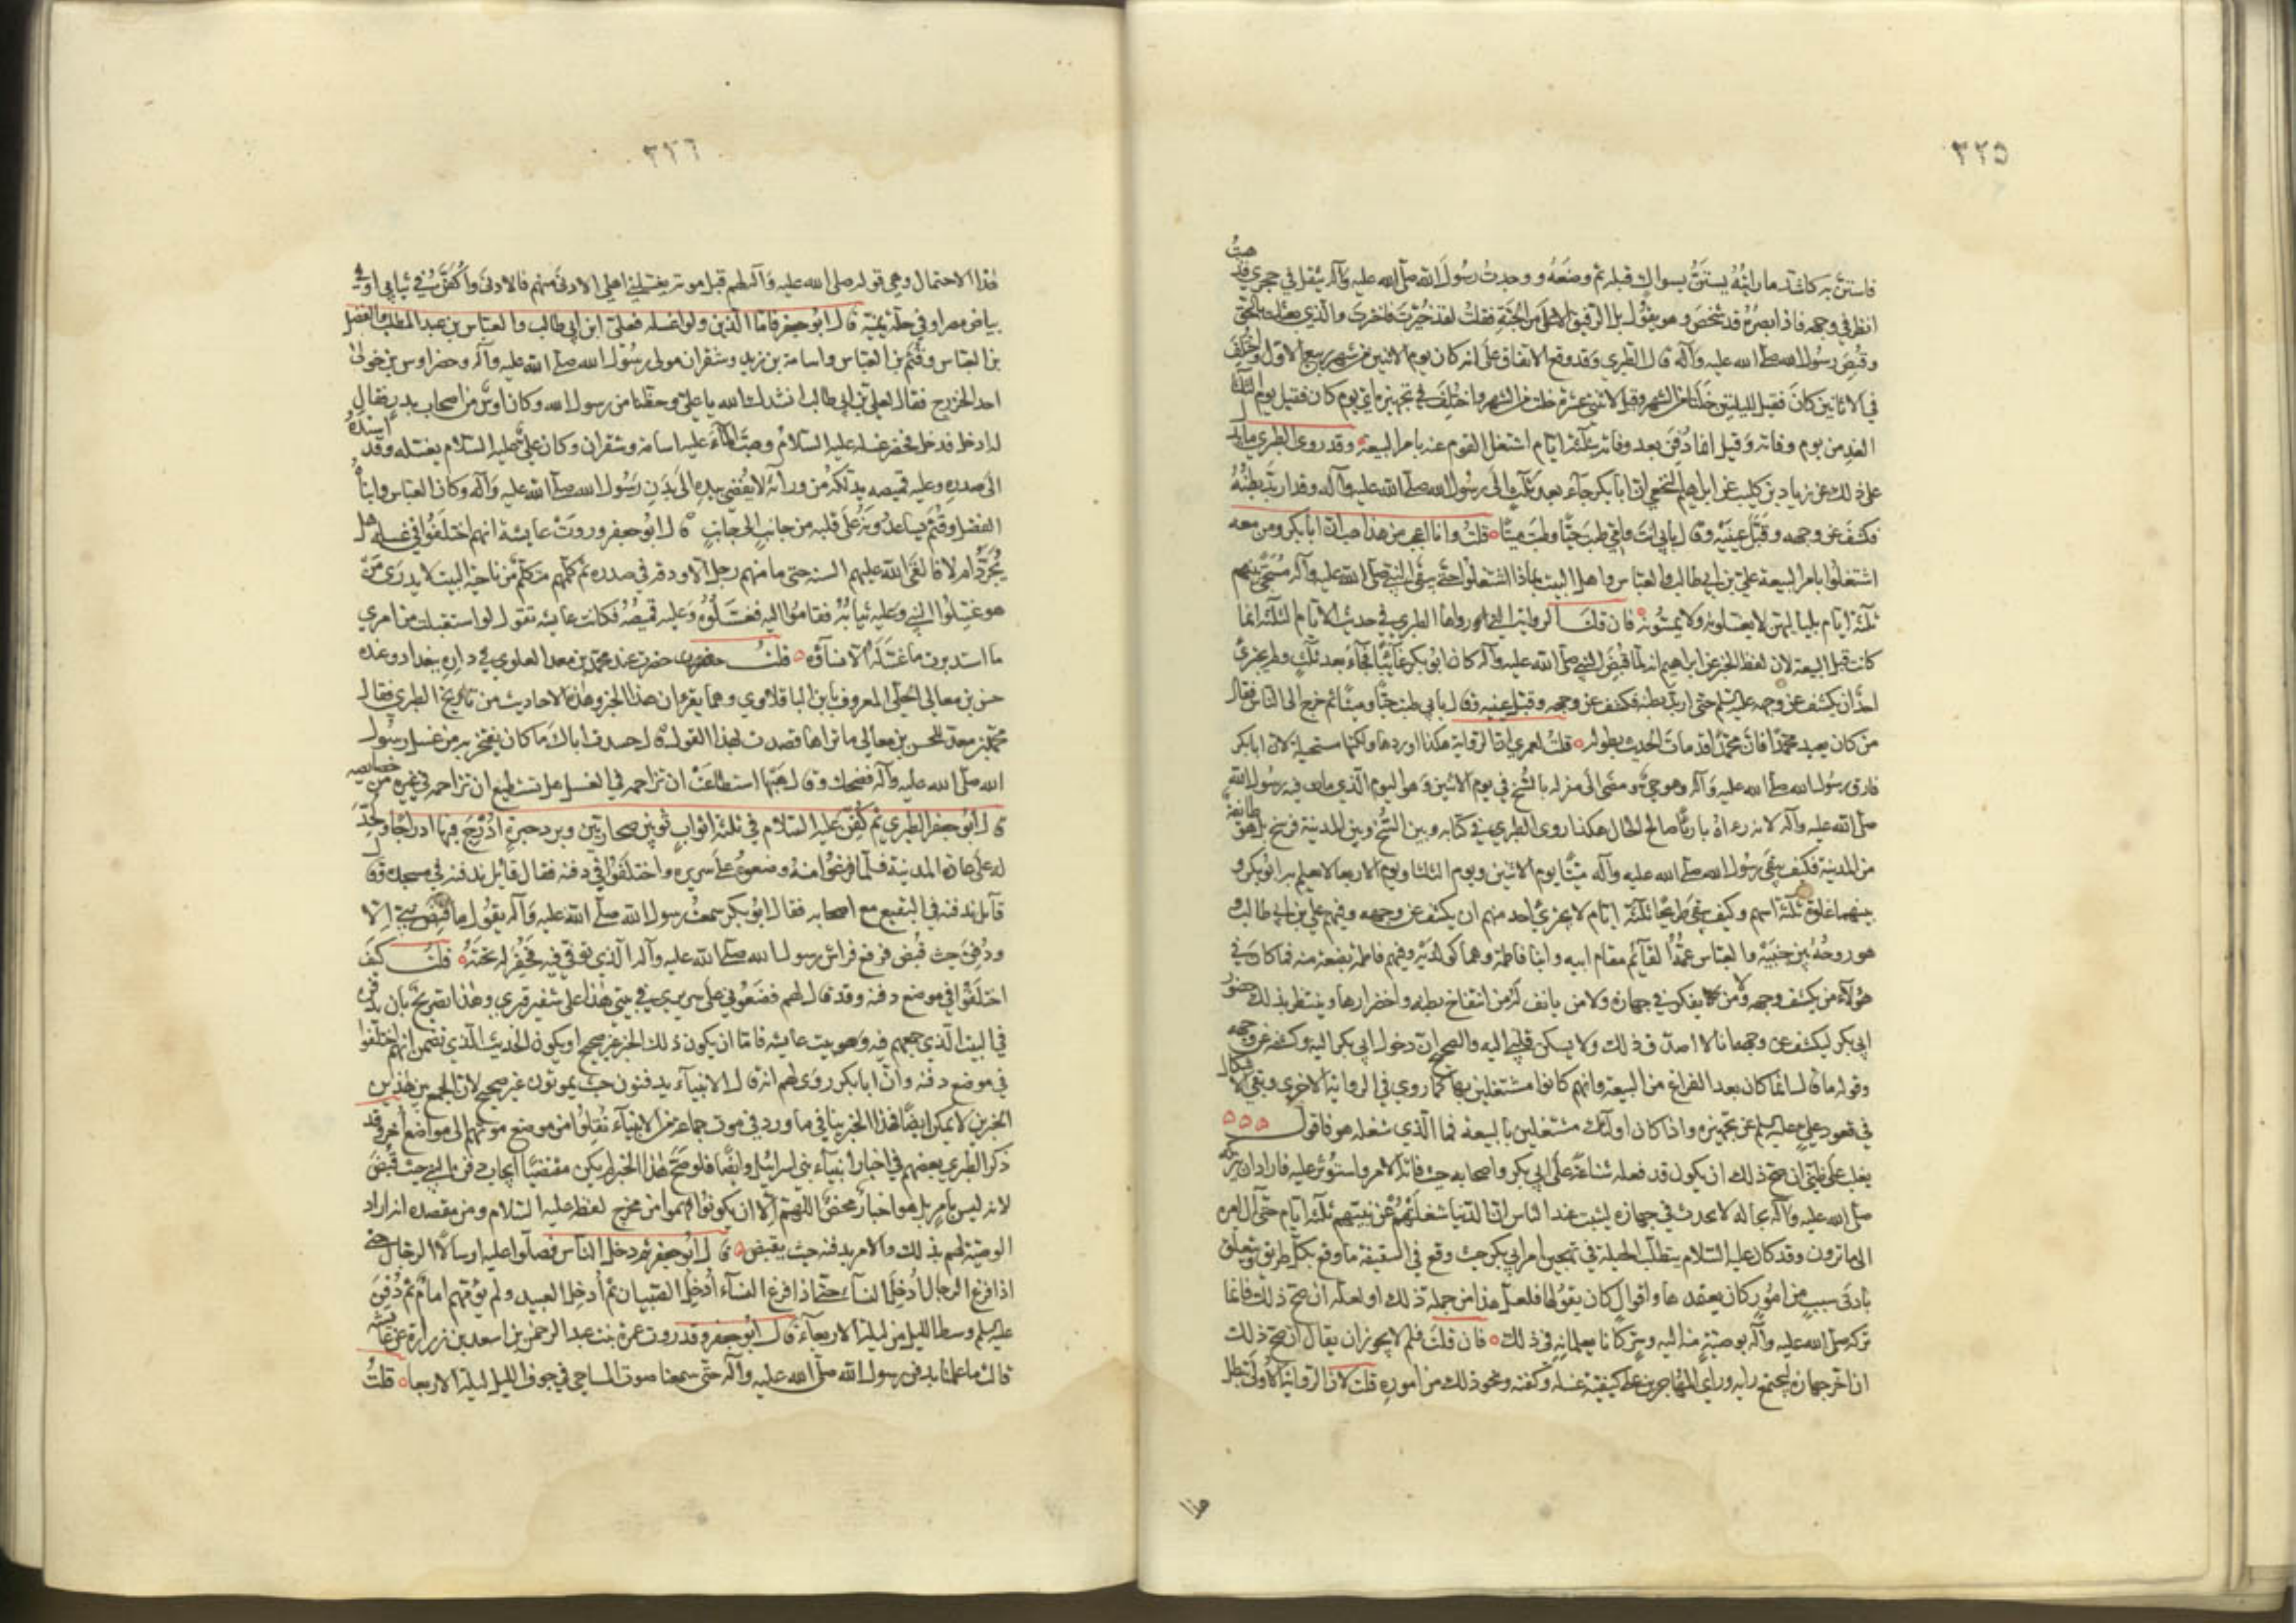 ٣٢٥
فاستن به كاشد ما رايته يستن بسواك قبله ثم وضعه ووجدت رسول الله صلى الله عليه وآله يثقل في حجري فذهبت
انظر في وجهه فاذا بصره قد شخص وهو يقول بل الرفيق الاعلى من الجنة فقلت لقد خيرت فاخترت والذي بعثك بالحق
وقبض رسول الله صلى الله عليه وآله قال الطبري وقد وقع الاتفاق على انه كان يوم الاثنين من شهر ربيع الاول واختلف
في اي الاثانين كان فقيل لليلتين خلتا من الشهر وقيل لاثنتي عشرة خلت من الشهر واختلف في تجهيزه اي يوم كان فقيل يوم الثلثا
الغد من يوم وفاته وقيل انما دفن بعد وفاته بثلثة ايام اشتغل القوم عنه بامر البيعة وقد روى الطبري ما يدل
على ذلك عن زياد بن كليب عن ابراهيم النخعي ان ابا بكر جآء بعد ثلث الى رسول الله صلى الله عليه وآله وقد اربد بطنه
فكشف عن وجهه وقبل عينيه وقال بابي انت وامي طبت حيا وطبت ميتا قلت وانا اعجب من هذا هب ان ابا بكر ومن معه
اشتغلوا بامر البيعة فعلي بن ابي طالب والعباس واهل البيت بماذا اشتغلوا حتى يبقى النبي صلى الله عليه وآله مسجى بينهم
ثلثة ايام بلياليهن لا يغسلونه ولا يمسونه فان قلت الرواية التي رواها الطبري في حديث الايام الثلثة انما
كانت قبل البيعة لان لفظ الخبر عن ابراهيم انه لما قبض النبي صلى الله عليه وآله كان ابو بكر غائبا فجآء بعد ثلث ولم يجترئ
احد ان يكشف عن وجهه عليه السلم حتى اربد بطنه فكشف عن وجهه وقبل عينيه وقال بابي طبت حيا وميتا ثم خرج الى الناس فقال
من كان يعبد محمدا فان محمدا قد مات الحديث بطوله قلت لعمري ان الرواية هكذا اوردها ولكنها مستحيلة لان ابا بكر
فارق رسول الله صلى الله عليه وآله وهو حي ومضى الى منزله بالسنح في يوم الاثنين وهو اليوم الذي مات فيه رسول الله
صلى الله عليه وآله لانه رءاه بارئا صالح الحال هكذا روى الطبري في كتابه وبين السنح وبين المدينة فرسخ بل هو طائفة
من المدينة فكيف يبقى رسول الله صلى الله عليه وآله ميتا يوم الاثنين ويوم الثلثا ويوم الاربعا لا يعلم به ابو بكر و
بينهما غلوة ثلثة اسهم وكيف يبقى طريحا ثلثة ايام لا يجترئ احد منهم ان يكشف عن وجهه وفيهم علي بن ابي طالب و
هو روحه بين جنبيه والعباس عمه القآئم مقام ابيه وابنا فاطمة وهما كولديه وفيهم فاطمة بضعة منه فما كان في
هؤلآء من يكشف وجهه ولا من يفكر في جهازه ولا من يانف له من انتفاخ بطنه واخضرارها وينتظر بذلك حضور
ابي بكر ليكشف عن وجهه انا لا اصدق ذلك ولا يسكن قلبي اليه والصحيح ان دخول ابي بكر اليه وكشفه عن وجهه
وقوله ما قال انما كان بعد الفراغ من البيعة وانهم كانوا مشتغلين بها كما روي في الرواية الاخرى وبقي الاشكال
في قعود علي عليه السلم عن تجهيزه واذا كان اولئك مشتغلين بالبيعة فما الذي شغله هو فاقول
يغلب على ظني ان صح ذلك ان يكون قد فعله شناعة على ابي بكر واصحابه حيث فاته الامر واستؤثر عليه فاراد ان يتركه
صلى الله عليه وآله بحاله لا يحدث في جهازه ليثبت عند الناس ان الدنيا شغلتهم عن نبيهم ثلثة ايام حتى آل امره
الى ما ترون وقد كان عليه السلام يتطلب الحيلة في تهجين امر ابي بكر حيث وقع في السقيفة ما وقع بكل طريق ويتعلق
بادنى سبب من امور كان يعتمدها واقوال كان يقولها فلعل هذا من جملة ذلك او لعله ان صح ذلك فانما
تركه صلى الله عليه وآله بوصية منه اليه وسر كانا يعلمانه في ذلك فان قلت فلم لا يجوز ان يقال ان صح ذلك
انه اخر جهازه ليجتمع رايه وراي المهاجرين على كيفية غسله وكفنه ونحو ذلك من اموره قلت لان الرواية الاولى تبطل
هذا
٣٢٦
هذا الاحتمال وهي قوله صلى الله عليه وآله لهم قبل موته يغسلني اهلي الادنى منهم فالادنى واكفن في ثيابي او في
بياض مصر او في حلة يمنية قال ابو جعفر فاما الذين ولوا غسله فعلي ابن ابي طالب والعباس بن عبد المطلب والفضل
بن العباس وقثم بن العباس واسامة بن زيد وشقران مولى رسول الله صلى الله عليه وآله وحضر اوس بن خولى
احد الخزرج فقال لعلي بن ابي طالب انشدك الله يا علي وحظنا من رسول الله وكان اوس من اصحاب بدر فقال
له ادخل فدخل فحضر غسله عليه السلام وصب المآء عليه اسامة وشقران وكان علي عليه السلام يغسله وقد اسنده
الى صدره وعليه قميصه يدلكه من ورآئه لا يفضي بيده الى بدن رسول الله صلى الله عليه وآله وكان العباس وابناه
الفضل وقثم يساعدونه على قلبه من جانب الى جانب قال ابو جعفر وروت عايشة انهم اختلفوا في غسله هل
يجرد ام لا فالقى الله عليهم السنة حتى ما منهم رجل الا وذقنه في صدره ثم كلمهم متكلم من ناحية البيت لا يدرى من
هو غسلوا النبي وعليه ثيابه فقاموا اليه فغسلوه وعليه قميصه فكانت عايشة تقول لو استقبلت من امري
ما استدبرت ما غسله الا نساؤه قلت حضرت عند محمد بن معد العلوي في داره ببغداد وعنده
حسن بن معالي الحلي المعروف بابن الباقلاوي وهما يقرءان هذا الخبر وهذه الاحاديث من تاريخ الطبري فقال
محمد بن معد للحسن بن معالي ما تراها قصدت بهذا القول قال حسدت اباك ما كان يفتخر به من غسل رسول
الله صلى الله عليه وآله فضحك وقال هبها استطاعت ان تزاحمه في الغسل هل تستطيع ان تزاحمه في غيره من خصايصه
قال ابو جعفر الطبري ثم كفن عليه السلام في ثلثة اثواب ثوبين صحاريين وبرد حبرة ادرج فيها ادراجا ولحد
له على عادة المدينة فلما فرغوا منه وضعوه على سريره واختلفوا في دفنه فقال قائل ندفنه في مسجده وقال
قآئل ندفنه في البقيع مع اصحابه فقال ابو بكر سمعت رسول الله صلى الله عليه وآله يقول ما قبض نبي الا
ودفن حيث قبض فرفع فراش رسول الله صلى الله عليه وآله الذي توفي فيه فحفر له تحته قلت كيف
اختلفوا في موضع دفنه وقد قال لهم فضعوني على سريري في بيتي هذا على شفير قبري وهذا تصريح بان يدفن
في البيت الذي جمعهم فيه وهو بيت عايشة فاما ان يكون ذلك الخبر غير صحيح او يكون الحديث الذي تضمن انهم اختلفوا
في موضع دفنه وان ابا بكر روى لهم انه قال الانبيآء يدفنون حيث يموتون غير صحيح لان الجمع بين هذين
الخبرين لا يمكن ايضا فهذا الخبر ينافي ما ورد في موت جماعة من الانبيآء نقلوا من موضع موتهم الى مواضع اخر وقد
ذكر الطبري بعضهم في اخبار انبيآء بني اسرائيل وايضا فلو صح هذا الخبر لم يكن مقتضيا ايجاب دفن النبي حيث قبض
لانه ليس بامر بل هو اخبار محض اللهم الا ان يكونوا فهموا من مخرج لفظه عليه السلام ومن مقصده انه اراد
الوصية لهم بذلك والامر بدفنه حيث يقبض قال ابو جعفر ثم دخل الناس فصلوا عليه ارسالا الرجال حتى
اذا فرغ الرجال ادخل النسآء حتى اذا فرغ النسآء ادخل الصبيان ثم ادخل العبيد ولم يؤمهم امام ثم دفن
عليه السلم وسط الليل من ليلة الاربعآء قال ابو جعفر وقد روت عمرة بنت عبد الرحمن بن اسعد بن زرارة عن عايشة
قالت ما علمنا بدفن رسول الله صلى الله عليه وآله حتى سمعنا صوت المساحي في جوف الليل ليلة الاربعا قلت